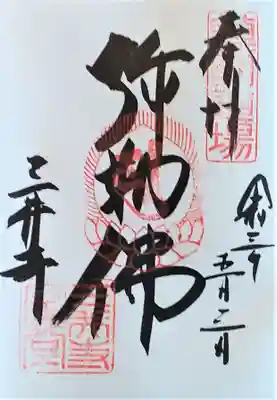 奉拝
令三年
五月二日
弥勒佛
三井寺